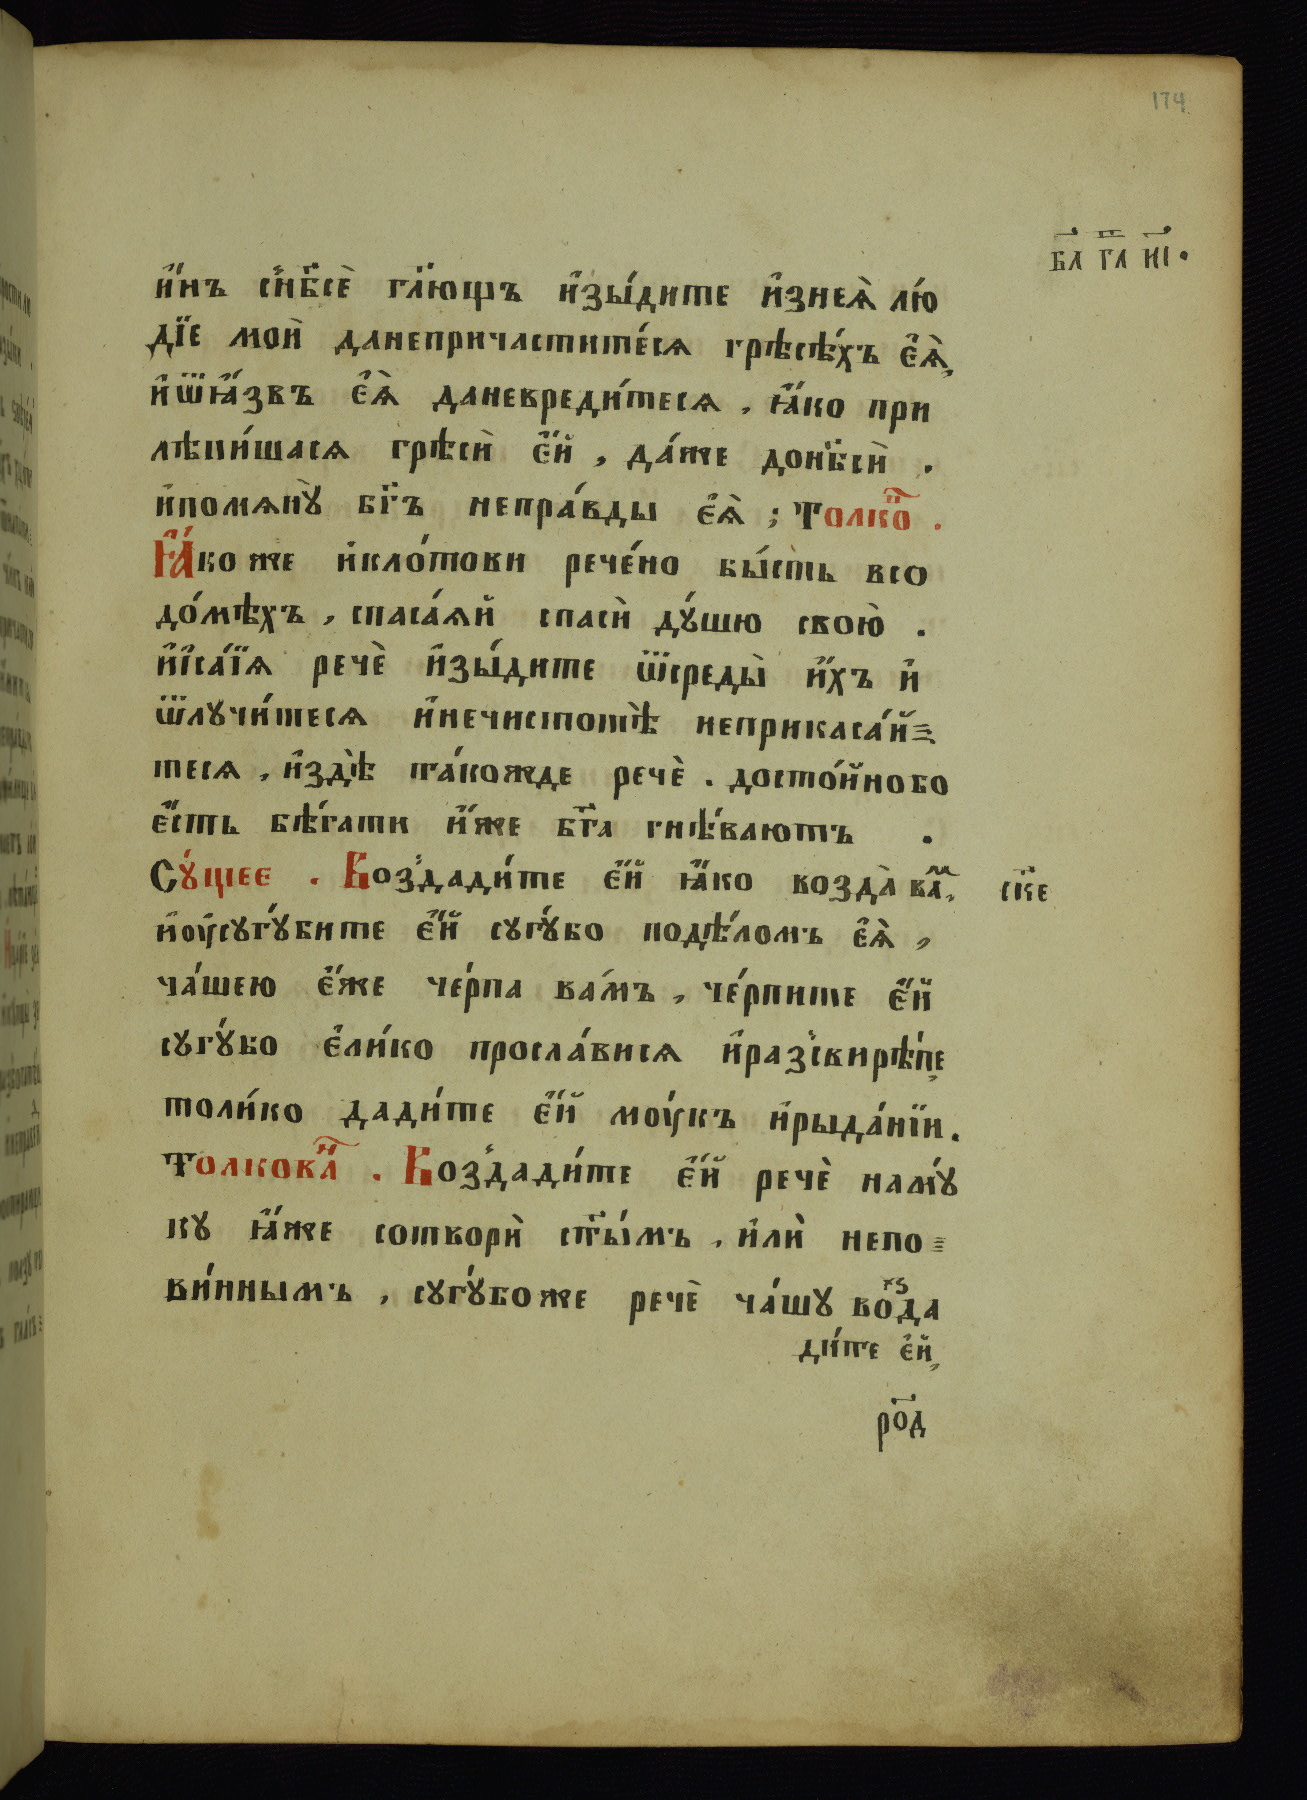 174
в҃л г҃л и҃і.
и҆́нъ с̾нб҃сѐ гл҃ющъ и҆зы́дите и҆знеѧ̀ лю́
дїе моѝ данепричастите́сѧ грѣсѣ́хъ є҆ѧ̀,
и҆ѿꙗ҆́звъ є҆ѧ̀ даневреди́тесѧ, ꙗ҆́ко при
лѣпи́шасѧ грѣсѝ є҆́й, да́же донб҃сѝ .
и҆помѧнꙋ̀ бг҃ъ непра́вды є҆ѧ̀; Толко̑ .
Ꙗ҆́коже и҆кло́тови рече́но бы́сть всо
до́мѣхъ, спаса́ѧй спасѝ дꙋ́шю своюѐ .
и҆і҆са́їѧ речѐ и҆зы́дите ѿсреды̀ и҆́хъ и҆
ѿлучи́тесѧ и҆нечистотѣ̀ неприкаса́й
тесѧ, и҆здѣ̀ та́кожде речѐ . досто́йнобо
є҆́сть бѣ́гати и҆́же бг҃а гнѣ́ваютъ .
Сꙋ́щее . Возⷣади́те є҆́й ꙗ҆́ко воздà ваⷨ, с҃ке
и҆оу҆сугꙋ́бите є҆́й сугꙋ́бо подѣ́ломъ є҆ѧ̀,
ча́шею є҆́же че́рпа ва́мъ, че́рпите є҆́й
сугꙋ́бо є҆ли́ко просла́висѧ и҆раз̾свирѣ́пе
толи́ко дади́те є҆́й моу́къ и҆рыда́нїи.
Толковаⷩ . Воз̾дади́те є҆́й речѐ намꙋ́
ку ꙗ҆́же сотворѝ ст҃ы́мъ, и҆лѝ непо
ви́ннымъ, сугꙋ́боже речѐ ча́шу воⷥда
ди́те є҆́й,
ро҃д